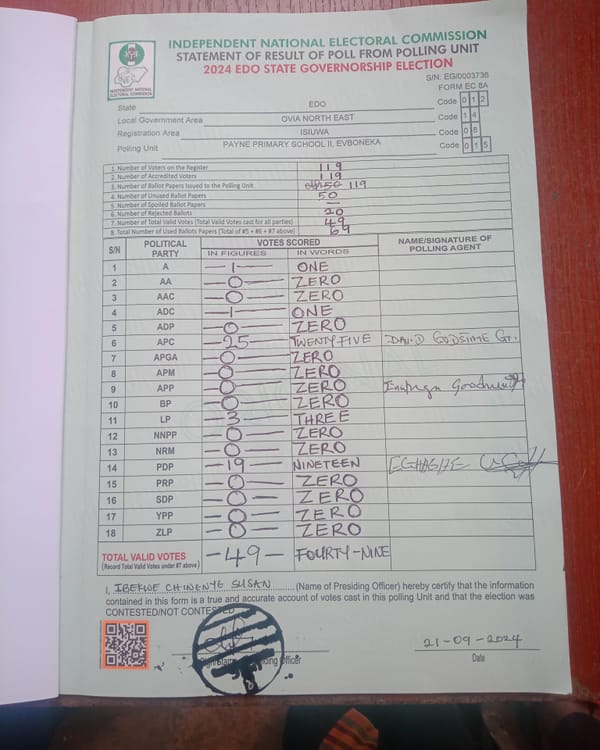 INDEPENDENT NATIONAL ELECTORAL COMMISSION
STATEMENT OF RESULT OF POLL FROM POLLING UNIT
2024 EDO STATE GOVERNORSHIP ELECTION
INDEPENDENT NATIONAL ELECTORAL COMMISSION
S/N: EG/0003736
FORM EC 8A
State EDO Code 0 1 2
Local Government Area OVIA NORTH EAST Code 1 4
Registration Area ISIUWA Code 0 8
Polling Unit PAYNE PRIMARY SCHOOL II, EVBONEKA Code 0 1 5
1. Number of Voters on the Register 119
2. Number of Accredited Voters 119
3. Number of Ballot Papers Issued to the Polling Unit 119
4. Number of Unused Ballot Papers 50
5. Number of Spoiled Ballot Papers —
6. Number of Rejected Ballots 20
7. Number of Total Valid Votes (Total Valid Votes cast for all parties) 49
8. Total Number of Used Ballots Papers (Total of #5 + #6 + #7 above) 69
S/N POLITICAL PARTY VOTES SCORED NAME/SIGNATURE OF POLLING AGENT
IN FIGURES IN WORDS
1 A —1— ONE
2 AA —0— ZERO
3 AAC —0— ZERO
4 ADC —1— ONE
5 ADP —0— ZERO
6 APC —25— TWENTY FIVE DAVID GODSTIME GT.
7 APGA —0— ZERO
8 APM —0— ZERO
9 APP —0— ZERO
10 BP —0— ZERO
11 LP —3— THREE
12 NNPP —0— ZERO
13 NRM —0— ZERO
14 PDP —19— NINETEEN
15 PRP —0— ZERO
16 SDP —0— ZERO
17 YPP —0— ZERO
18 ZLP —0— ZERO
TOTAL VALID VOTES —49— FOURTY-NINE
(Record Total Valid Votes under #7 above)
I, IBEKWE CHINENYE SUSAN (Name of Presiding Officer) hereby certify that the information
contained in this form is a true and accurate account of votes cast in this polling Unit and that the election was
CONTESTED/NOT CONTESTED
21-09-2024
Officer
Date